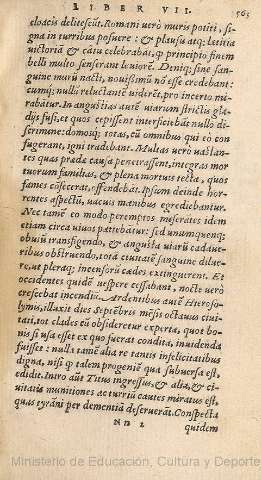 LIBER VII. 563
cloacis delitescũt. Romani verò muris potiti, si
gna in turribus posuere: & plausu atq; lætitia
victoriã & cãtu celebrabãt, ꝙ principio finem
belli multo senserant leuiorẽ. Deniq; sine san
guine murũ nacti, nouissimũ nõ esse credebant:
cumq; nulli reluctãtẽ viderẽt, pro incerto mi
rabãtur. In angustias autẽ viarum strictis gla
dijs fusi, et quos cepissent interficiebãt nullo di
scrimine: domosq; totas, cũ omnibus qui eò con
fugerant, igni tradebant. Multas verò vastan
tes quas prædæ causa penetrassent, integras mor
tuorum familias, & plena mortuis tecta, quos
fames cõsecerat, offendebãt. Ipsum deinde hor
rentes aspectũ, vacuis manibus egrediebantur.
Nec tamẽ eo modo peremptos miserates idem
etiam circa viuos patiebãtur: sed unumquenq;
obuiũ transfigendo, & angusta viarũ cadaue-
ribus obstruendo, totã ciuitatẽ sanguine diluere,
ut pleraq; incensorũ cædes extinguerent. Et
occidentes quidẽ vespere cessabant, nocte verò
crescebat incendiũ. Ardentibus autẽ Hieroso-
lymis, illuxit dies Septẽbris mẽsis octauus ciui
tati, tot clades cũ obsideretur expertæ, quot bo-
nis si usa esset ex quo fuerat condita, inuidenda
fuisset: nulla tamẽ alia re tantis infelicitatibus
digna, nisi ꝙ talem progeniẽ qua subuersa est,
edidit. Intrò aũt Titus ingressus, & alia, & ci-
uitatis munitiones ac turriũ cautes miratus est,
quas tyrãni per dementiã deseruerãt. Conspecta
NN 2 quidem
Ministerio de Educación, Cultura y Deporte